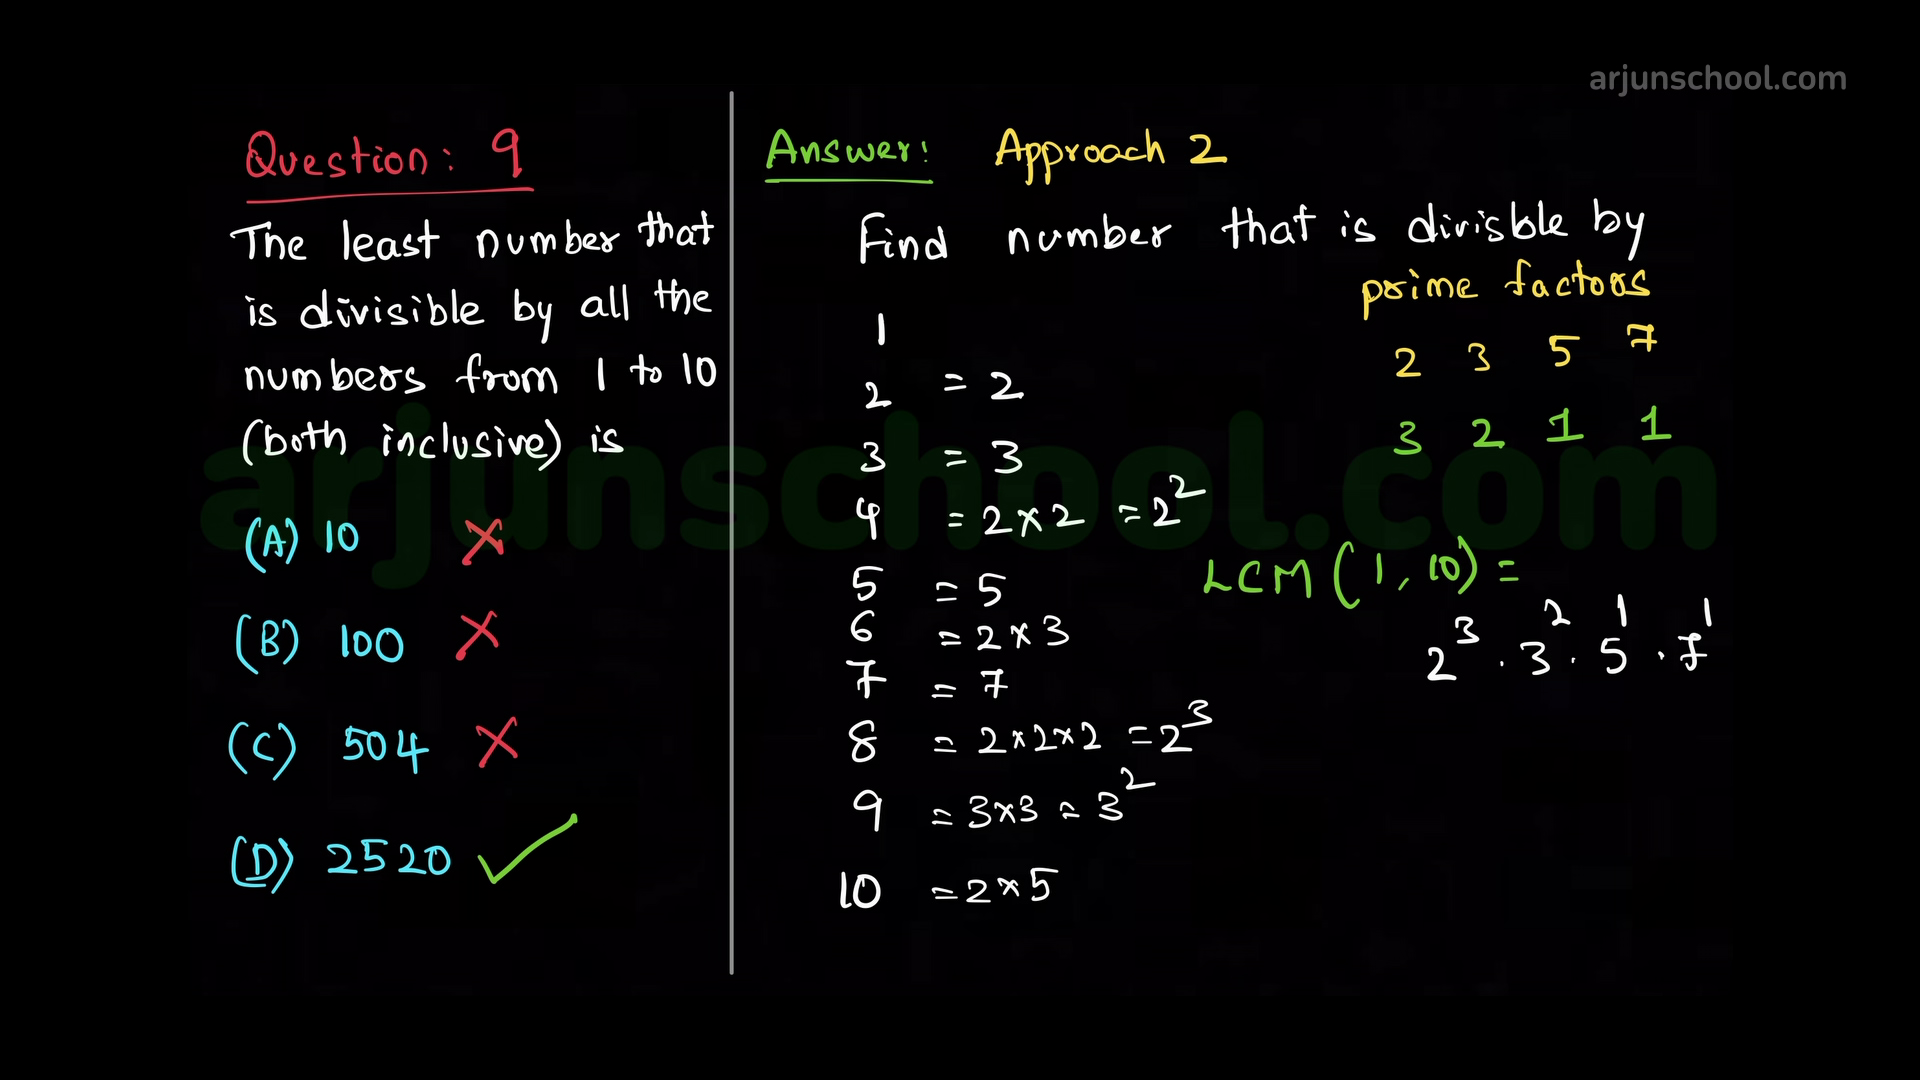 arjunschool.com
Question: 9
The least number that
is divisible by all the
numbers from 1 to 10
(both inclusive) is
(A) 10 ✗
(B) 100 ✗
(C) 504 ✗
(D) 2520 ✓
Answer: Approach 2
Find number that is divisble by
1
2 = 2
3 = 3
4 = 2×2 = 2²
5 = 5
6 = 2×3
7 = 7
8 = 2×2×2 = 2³
9 = 3×3 = 3²
10 = 2×5
prime factors
2 3 5 7
3 2 1 1
LCM (1, 10) =
2³ · 3² · 5¹ · 7¹
arjunschool.com